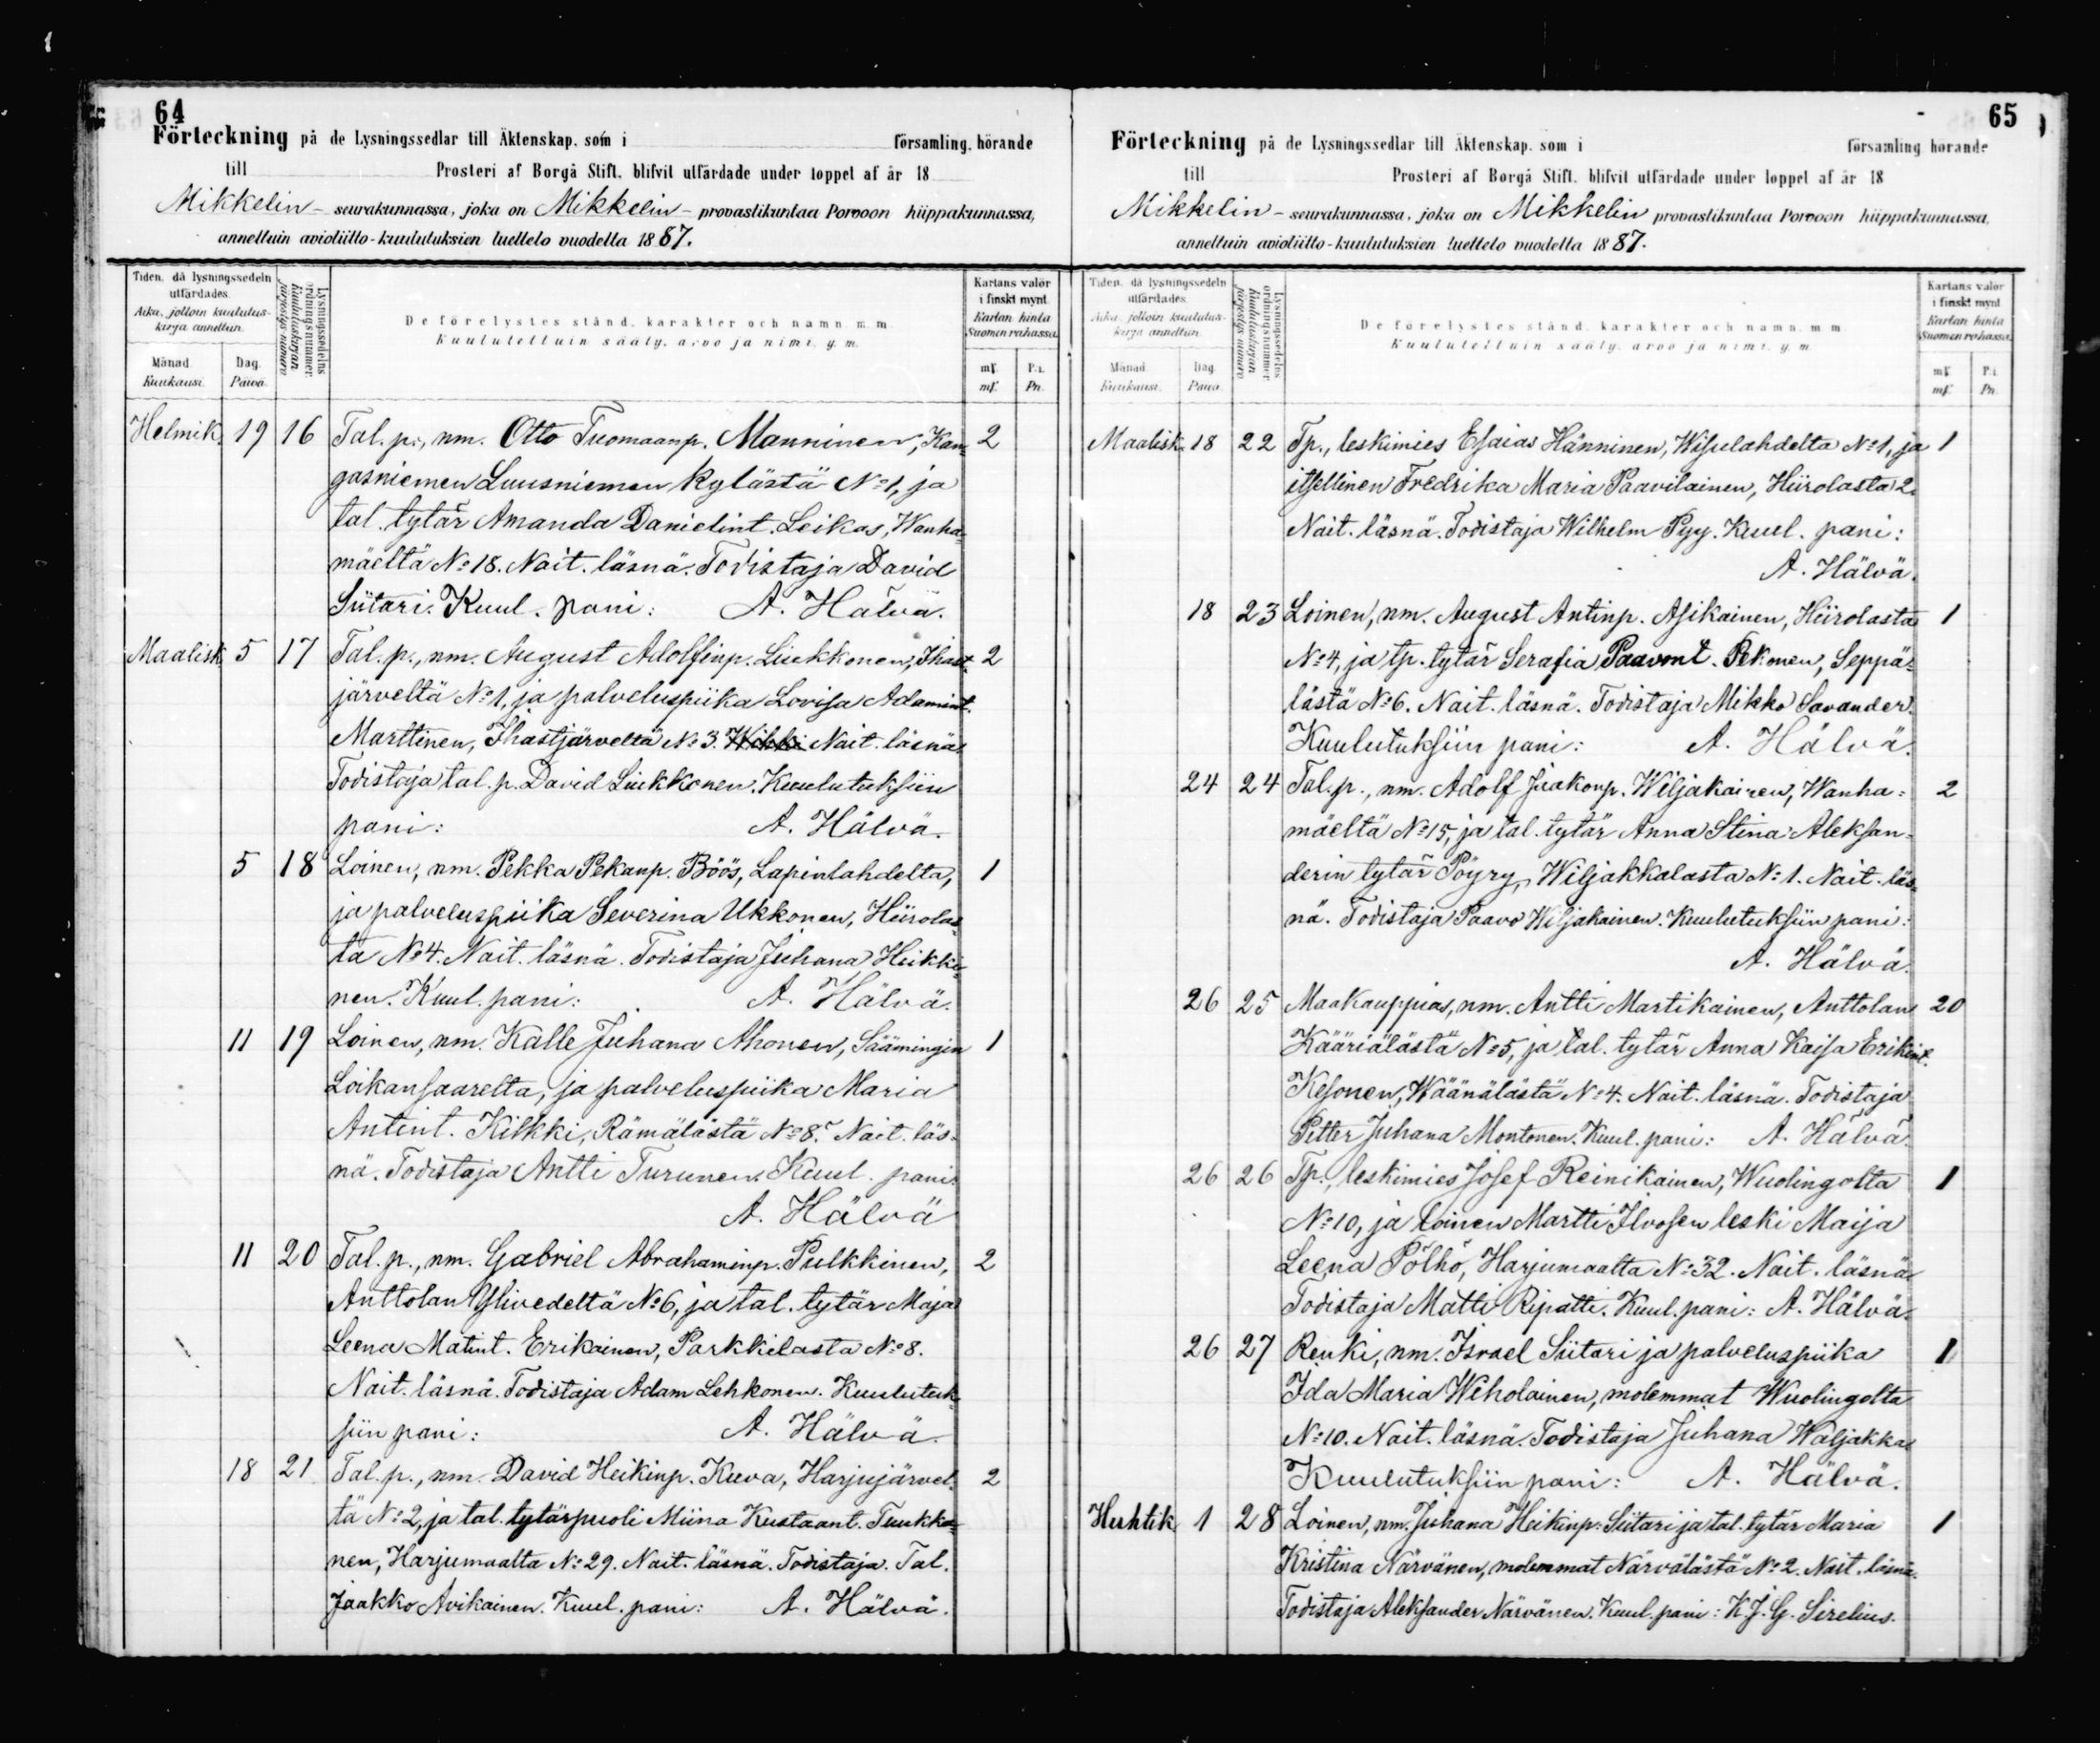 64
Förteckning på de Lysningssedlar till Äktenskap, som i församling, hörande
till Prosteri af Borgå Stift, blifvit utfärdade under loppet af år 18
Mikkelin - seurakunnassa, joka on Mikkelin - provastikuntaa Porvoon hiippakunnassa,
annettuin avioliitto-kuulutuksien luettelo vuodelta 1887.
Tiden, då lysningssedeln utfärdades.
Aika, jolloin kuulutuskirja annettiin.
Månad. Kuukausi.
Dag. Päivä.
Lysningssedelns ordningsnummer.
Kuulutuskirjan järjestys-numero
De förelystes stånd, karakter och namn m. m.
Kuulutettuin sääty, arvo ja nimi, y. m.
Kartans valör i finskt mynt.
Kartan hinta Suomen rahassa.
mf. mf.
P:i. Pn.
Helmik. 19 16 Tal. p., nm. Otto Tuomaanp. Manninen, Kan= 2
gasniemen Luusniemen kylästä No 1, ja
tal. tytär Amanda Danielint. Leikas, Wanha=
mäeltä No 18. Nait. läsnä. Todistaja David
Siitari. Kuul. pani: A. Hälvä.
Maalisk 5 17 Tal. p., nm. August Adolfinp. Liukkonen, Ihast= 2
järveltä No 1, ja palveluspiika Lovisa Adamint.
Marttinen, Ihastjärveltä No 3. Nait. läsnä.
Todistaja tal. p. David Liukkonen. Kuulutuksiin
pani: A. Hälvä.
5 18 Loinen, nm. Pekka Pekanp. Böös, Lapinlahdelta, 1
ja palveluspiika Severina Ukkonen, Hiirolas=
ta No 4. Nait. läsnä. Todistaja Juhana Heikki=
nen. Kuul. pani: A. Hälvä.
11 19 Loinen, nm. Kalle Juhana Ahonen, Säämingin 1
Loikansaarelta, ja palveluspiika Maria
Antint. Kilkki, Rämälästä No 8. Nait. läs=
nä. Todistaja Antti Turunen. Kuul. pani:
A. Hälvä
11 20 Tal. p., nm. Gabriel Abrahaminp. Pulkkinen, 2
Anttolan Ylivedeltä No 6, ja tal. tytär Maja
Leena Matint. Erikainen, Parkkilasta No 8.
Nait. läsnä. Todistaja Adam Lehkonen. Kuulutuk=
siin pani: A. Hälvä.
18 21 Tal. p., nm. David Heikinp. Kuva, Harjujärvel= 2
tä No 2, ja tal. tytärpuoli Miina Kustaant. Tuukka=
nen, Harjumaalta No 29. Nait. läsnä. Todistaja. Tal.
Jaakko Avikainen. Kuul. pani: A. Hälvä.
65
Förteckning på de Lysningssedlar till Äktenskap, som i församling hörande
till Prosteri af Borgå Stift, blifvit utfärdade under loppet af år 18
Mikkelin - seurakunnassa, joka on Mikkelin provastikuntaa Porvoon hiippakunnassa,
annettuin avioliitto-kuulutuksien luettelo vuodelta 1887.
Tiden, då lysningssedeln utfärdades.
Aika, jolloin kuulutuskirja annettiin.
Månad. Kuukausi.
Dag. Päivä.
Lysningssedelns ordningsnummer
Kuulutuskirjan järjestys-numero
De förelystes stånd, karakter och namn, m. m.
Kuulutettuin sääty, arvo ja nimi, y. m.
Kartans valör i finskt mynt
Kartan hinta Suomen rahassa.
mf. mf.
P:i. Pn.
Maalisk. 18 22 Tp., leskimies Esaias Hänninen, Wisulahdelta No 1, ja 1
itsellinen Fredrika Maria Paavilainen, Hiirolasta 2.
Nait. läsnä. Todistaja Wilhelm Pyy. Kuul. pani:
A. Hälvä.
18 23 Loinen, nm. August Antinp. Asikainen, Hiirolasta 1
No 4, ja tp. tytär Serafia Paavont. Pekonen, Seppä=
lästä No 6. Nait. läsnä. Todistaja Mikko Savander.
Kuulutuksiin pani: A. Hälvä.
24 24 Tal. p., nm. Adolf Jaakonp. Wiljakainen, Wanha= 2
mäeltä No 15, ja tal. tytär Anna Stina Aleksan=
derin tytär Pöyry, Wiljakkalasta No 1. Nait. läs=
nä. Todistaja Paavo Wiljakainen. Kuulutuksiin pani:
A. Hälvä.
26 25 Maakauppias, nm. Antti Martikainen, Anttolan 20
Kääriälästä No 5, ja tal. tytär Anna Kaisa Erikint.
Kesonen, Wäänälästä No 4. Nait. läsnä. Todistaja
Petter Juhana Montonen. Kuul. pani: A. Hälvä.
26 26 Tp., leskimies Josef Reinikainen, Wuolingolta 1
No 10, ja loinen Martti Ilvosen leski Maija
Leena Pölhö, Harjumaalta No 32. Nait. läsnä.
Todistaja Matti Ripatti. Kuul. pani: A. Hälvä.
26 27 Renki, nm. Israel Siitari ja palveluspiika 1
Ida Maria Weholainen, molemmat Wuolingolta
No 10. Nait. läsnä. Todistaja Juhana Waljakka
Kuulutuksiin pani: A. Hälvä.
Huhtik 1 28 Loinen, nm. Juhana Heikinp. Siitari ja tal. tytär Maria 1
Kristina Närvänen, molemmat Närvälästä No 2. Nait. läsnä.
Todistaja Aleksander Närvänen. Kuul. pani: K. J. G. Sirelius.